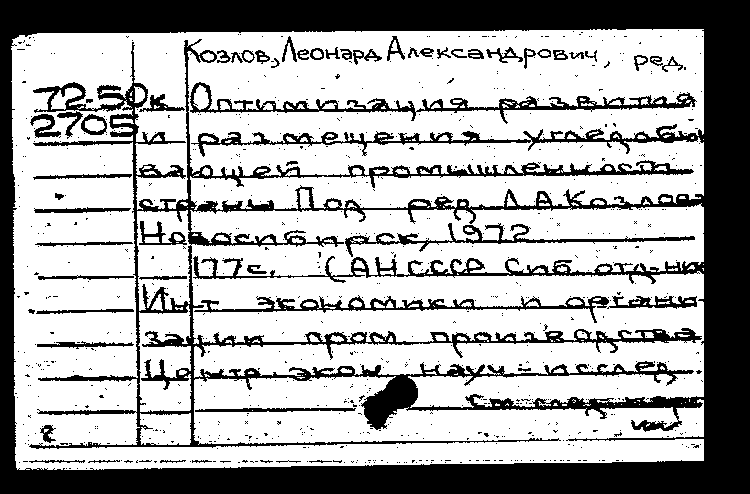 Козлов, Леонард Александрович, ред.
72-50к Оптимизация развития
2705 и размещения угледобы
вающей промышленности
страны Под ред. Л.А.Козлова
Новосибирск, 1972
177с. (АН СССР Сиб. отд-ние
Ин-т экономики и органи-
зации пром. производства
Центр. экон. науч-исслед.
См. след.